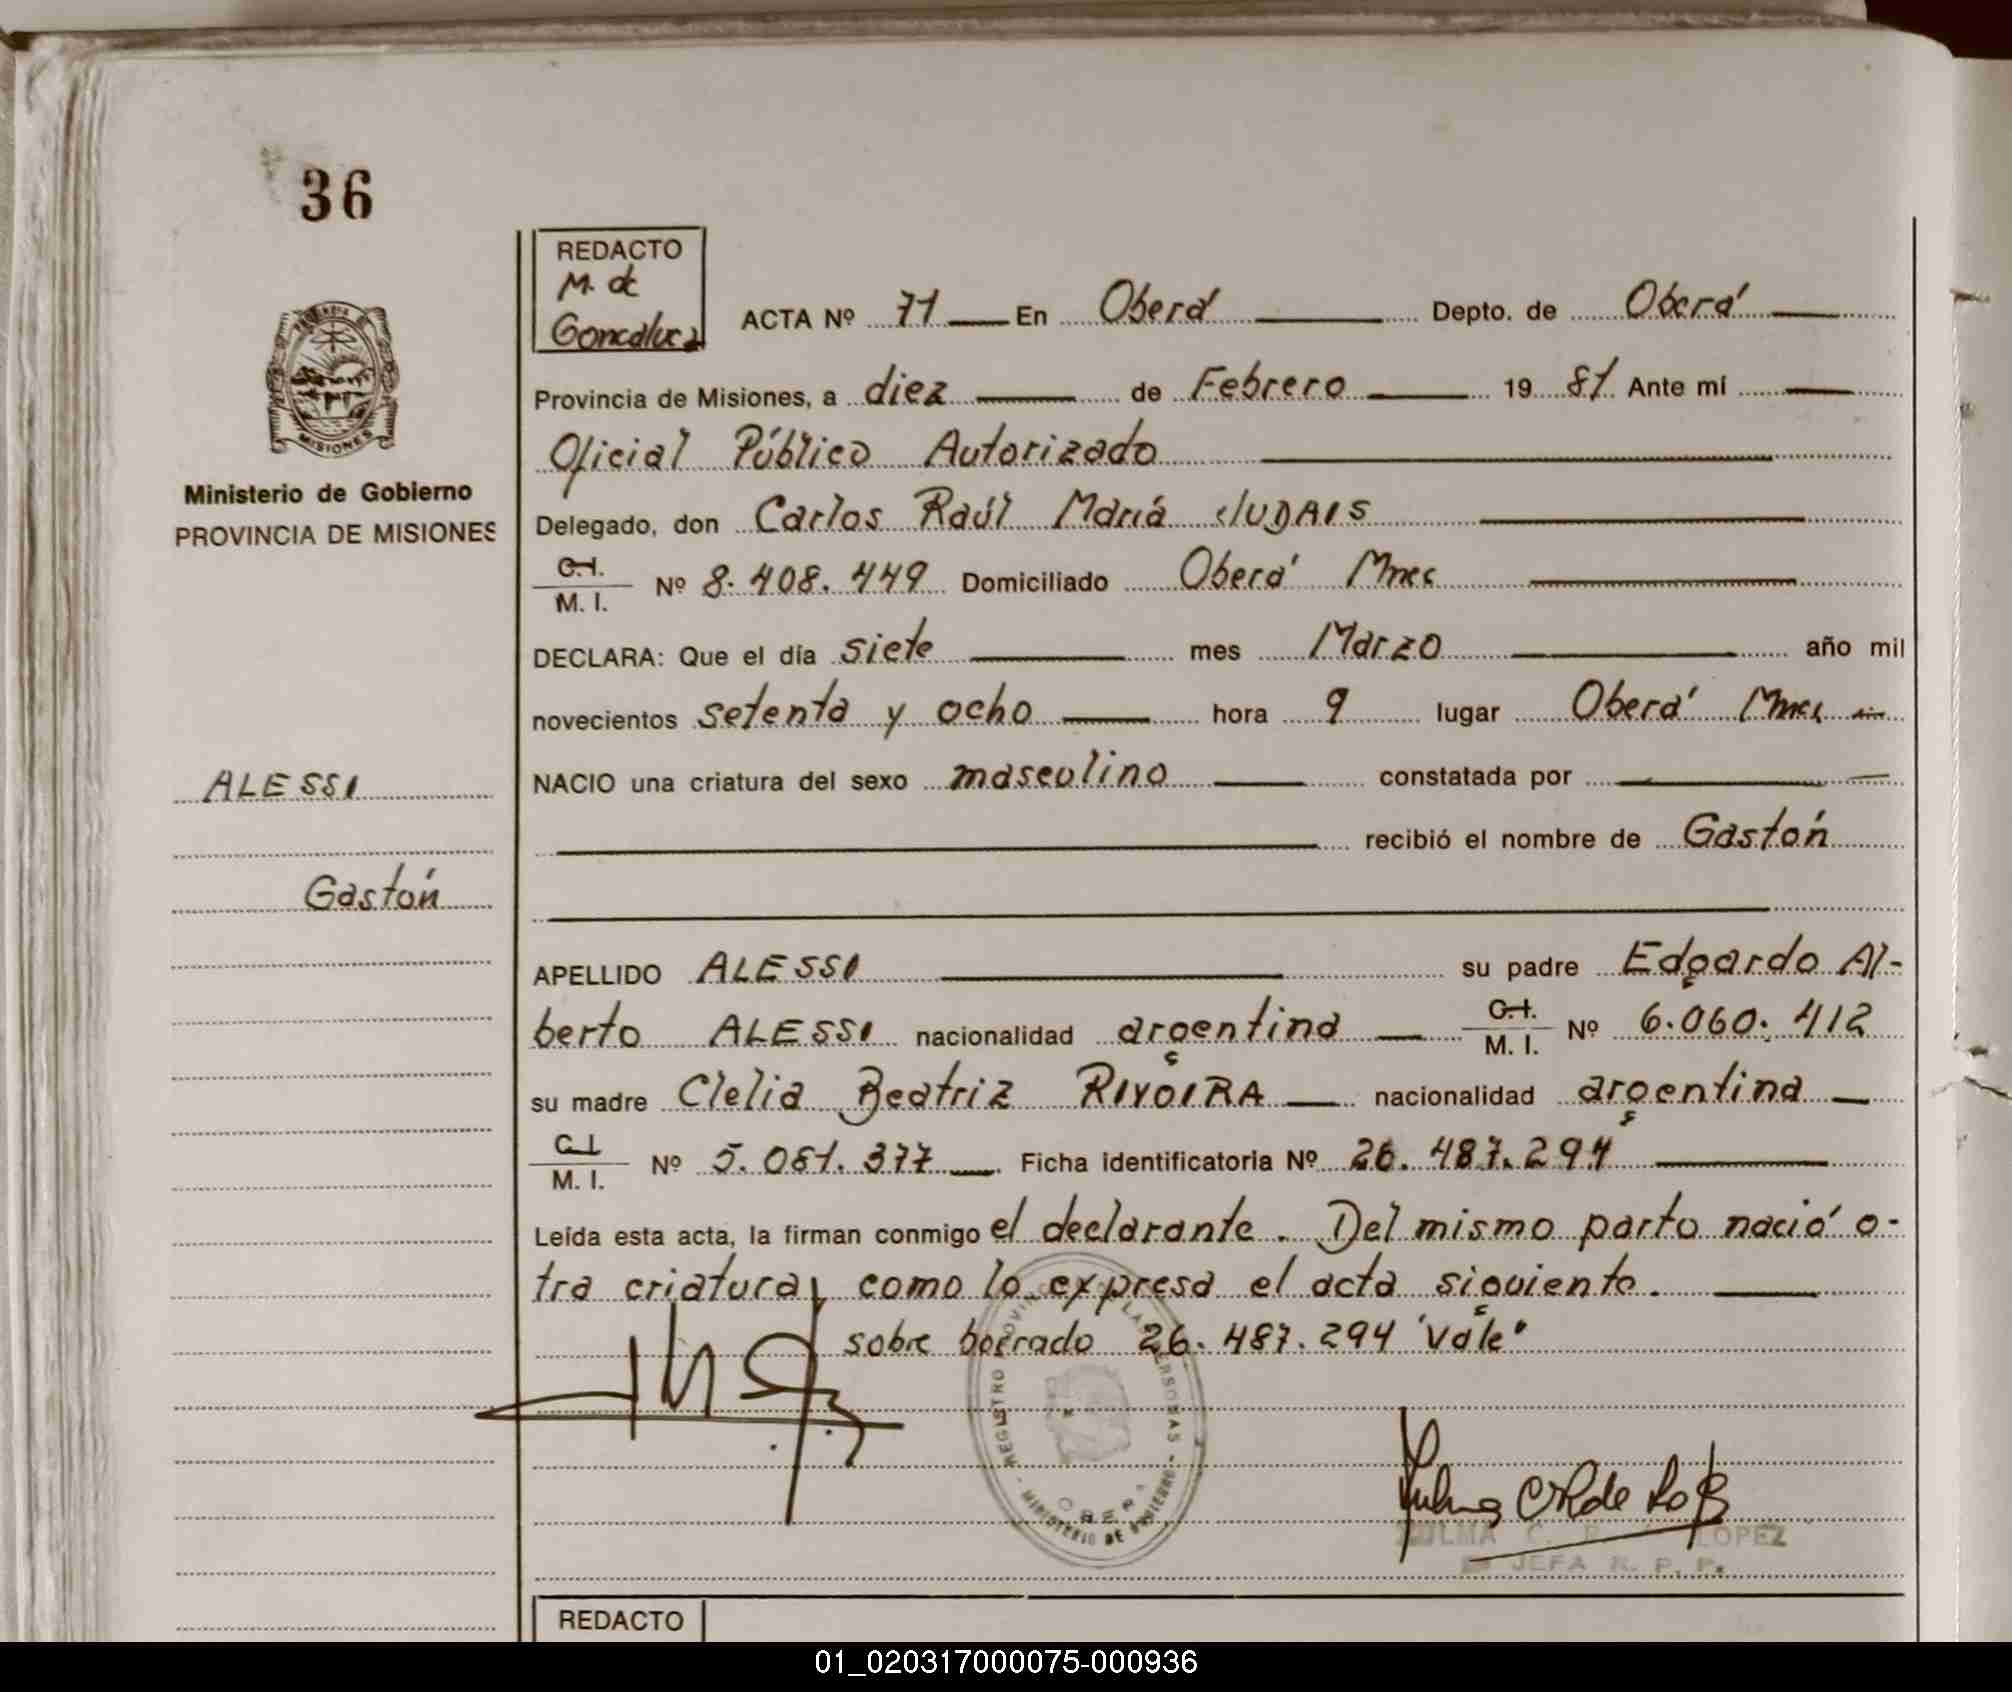 36
REDACTO
M. de
Goncalvez
ACTA Nº 71 En Oberá Depto. de Oberá
Provincia de Misiones, a diez de Febrero 19 81 Ante mí
Oficial Público Autorizado
Ministerio de Gobierno
PROVINCIA DE MISIONES
Delegado, don Carlos Raúl María JUDAIS
C.I.
M. I. Nº 8.408.449 Domiciliado Oberá Mnes
DECLARA: Que el día siete mes Marzo año mil
novecientos setenta y ocho hora 9 lugar Oberá Mnes
ALESSI
NACIO una criatura del sexo masculino constatada por
recibió el nombre de Gastón
Gastón
APELLIDO ALESSI su padre Edgardo Al-
berto ALESSI nacionalidad argentina C.I. M. I. Nº 6.060.412
su madre Clelia Beatriz RIVOIRA nacionalidad argentina
C.I.
M. I. Nº 5.081.377 Ficha identificatoria Nº 26.487.294
Leída esta acta, la firman conmigo el declarante. Del mismo parto nació o-
tra criatura, como lo expresa el acta siguiente.
sobre borrado 26.487.294 "Vale"
MINISTERIO DE GOBIERNO
OBERA
ZULMA C. LOPEZ
JEFA R. P. P.
REDACTO
01_020317000075-000936